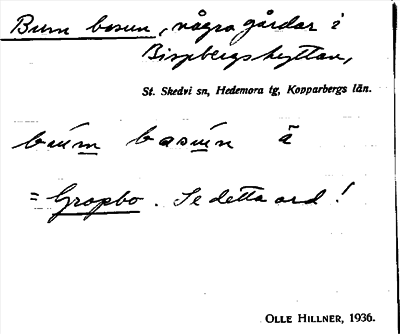 Bum basun, några gårdar i
Bispbergshyttan,
St. Skedvi sn, Hedemora tg, Kopparbergs län.
búm basún ä
= Gropbo. Se detta ord!
OLLE HILLNER, 1936.